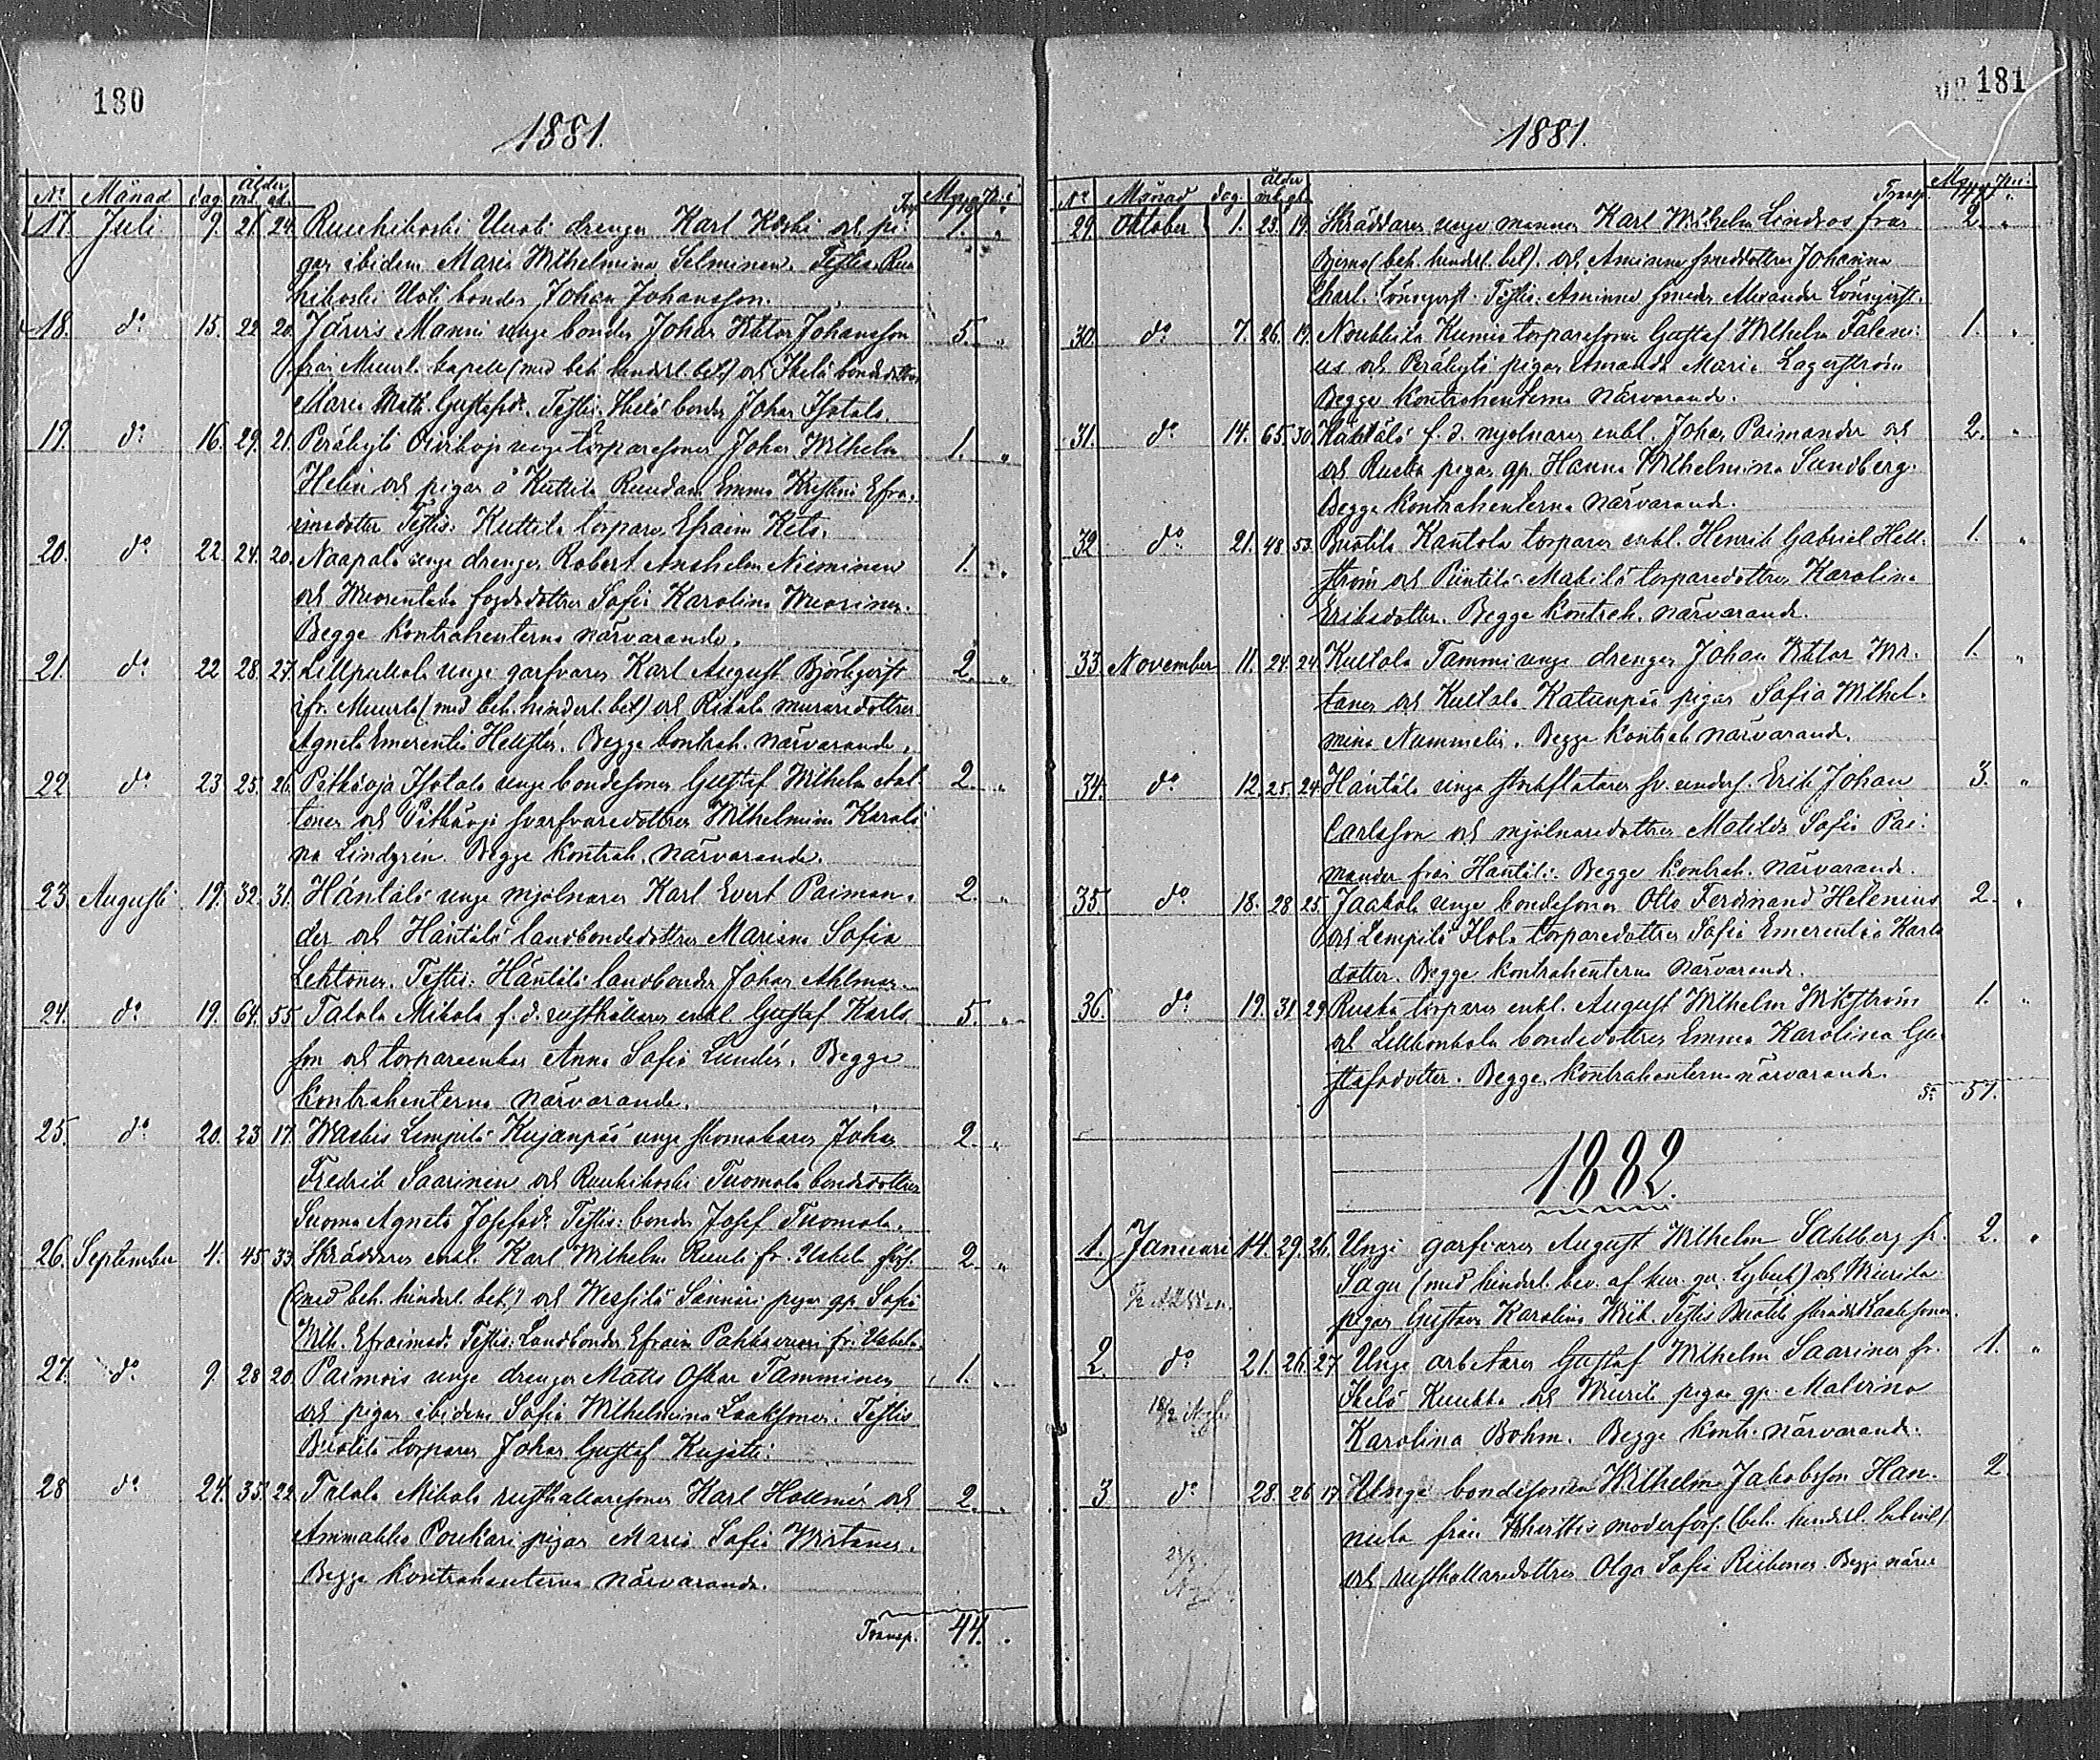 180
1881.
No Månad dag ålder ml. ql. Trp
17. Juli 9. 21 24. Ruuhikoski Uuoti drengen Karl Koski och pi- 1. "
gan ibidem Maria Wilhelmina Selminen. Testis: Ruu
hikoski Uoti bonden Johan Johansson.
18. do 15. 22 20. Järvis Manni unge bonden Johan Viktor Johansson 5. "
från Muurl. kapell (med beh. hinderl. bet.) och Ihelä bondedottren
Maria Math. Gustafsdr. Testis: Ihelä bonden Johan Isotalo.
19. do 16. 29. 21. Peräkylä unge torparesonen Johan Wilhelm 1. "
Helin och pigan å Kuttila Ruudam Emma Kristina Efra-
imsdotter Testis: Kuttila torparen Efraim Keto.
20. do 22 24. 20. Naapala unge drengen Robert Anshelm Nieminen 1. "
och Wuorentaka fogdedottren Sofia Karolina Wuorinen.
Begge kontrahenterna närvarande.
21. do 22 28. 27. unge garfvaren Karl August Björkqvist 2. "
ifr. Muurla (med beh. hinderl. bet.) och muraredottren
Agneta Emerentia Hellstén. Begge kontrah. närvarande.
22 do 23 25. 26. Pitkäoja Isotalo unge bondesonen Gustaf Wilhelm Aal- 2. "
tonen och Pitkäoja svarfvaredottren Wilhelmina Karoli
na Lindgrén. Begge kontrah. närvarande.
23. Augusti 19. 32. 31. Häntälä unge mjölnaren Karl Evert Paiman- 2. "
der och Häntälä landbondedottren Mariana Sofia
Lehtonen. Testis: Häntälä landbonden Johan Ahlman.
24. do 19. 64. 55. Talola Mikola f. d. rusthållaren enkl. Gustaf Karls 5. "
son och torpareenkan Anna Sofia Lundén. Begge
kontrahenterna närvarande.
25. do 20. 23 17. Waskio Lempilä Kujanpää unge skomakaren Johan 2. "
Fredrik Saarinen och Ruuhikoski Tuomola bondedottren
Serona Agneta Josefsdr. Testis: bonden Josef Tuomola.
26. September 4. 45 33. Skräddaren enkl. Karl Wilhelm fr. Uskela förs. 2. "
(med beh. hinderl. bet.) och pigan gp. Sofia
Wilh. Efraimsdr. Testis: Landbonden Efraim fr. Uskela.
27. do 9. 28 20. Paimois unge drengen Matts Oskar Tamminen 1. "
och pigan ibidem Sofia Wilhelmina Laaksonen. Testis
torparen Johan Gustaf
28 do 24. 35. 22. Talola Mikola rusthållaresonen Karl Hollmén och 2. "
Ammakko Poukari pigan Maria Sofia Wirtanen.
Begge kontrahenterna närvarande.
Transp. 44. "
181
1881.
No Månad dag. ålder ml. ql. Transp.
29. Oktober 1. 23. 19. Skräddaren unge mannen Karl Wilhelm Lindroos från 2. "
Bjerno (beh. hinderl. bet). och Aminne smeddottren Johanna
Charl. Lönnqvist. Testis: Aminne smeden Alexander Lönnqvist.
30. do 7. 26. 19. Kumio torparesonen Gustaf Wilhelm Taleni- 1. "
us och Peräkylä pigan Amanda Maria Lagerström
Begge kontrahenterna närvarande.
31. do 14. 65 30 Häntälä f. d. mjölnaren enkl. Johan Paimander och 2. "
och Ruska pigan gp. Hanna Wilhelmina Sandberg.
Begge kontrahenterna närvarande.
32 do 21. 48 53. Kantola torparen enkl. Henrik Gabriel Hell- 1. "
ström och Pintilä Mäkilä torparedottren Karolina
Eriksdotter. Begge kontrah. närvarande.
33. November 11. 24. 24. Kultola Tammi unge drengen Johan Viktor Wir- 1. "
tanen och Kultola Katunpää pigan Sofia Wilhel-
mina Nummelin. Begge kontrah närvarande.
34. do 12. 25. 24. Häntälä unge sv. unders. Erik Johan 3. "
Carlsson och mjölnaredottren Matilda Sofia Pai-
mander från Häntälä. Begge kontrah. närvarande.
35. do 18. 28 25. Jaakola unge bondesonen Otto Ferdinand Helenius 2. "
och Lempilä Ilola torparedottren Sofia Emerentia Karls
dotter. Begge kontrahenterna närvarande.
36. do 19. 31 29. Ruska torparen enkl. August Wilhelm Wikström 1. "
och bondedottren Emma Karolina Gu-
stafsdotter. Begge kontrahenterna närvarande.
Sa 57.
1882.
1. Januari 14. 29. 26. Unge garfvaren August Wilhelm Sahlberg fr. 2. "
Sagu (med hinderl. bev. af Lybeck) och Muurla
pigan Gustava Karolina Testis
2. do 21. 26. 27 Unge arbetaren Gustaf Wilhelm Saarinen fr. 1. "
Ihelä och pigan gp. Malvina
Karolina Bohm. Begge kontr. närvarande.
3 do 28. 26 17. Unge bondesonen Wilhelm Jakobsson Han- 2.
nula från moderförs. (beh. hinderl.
och rusthållaredottren Olga Sofia Begge närv